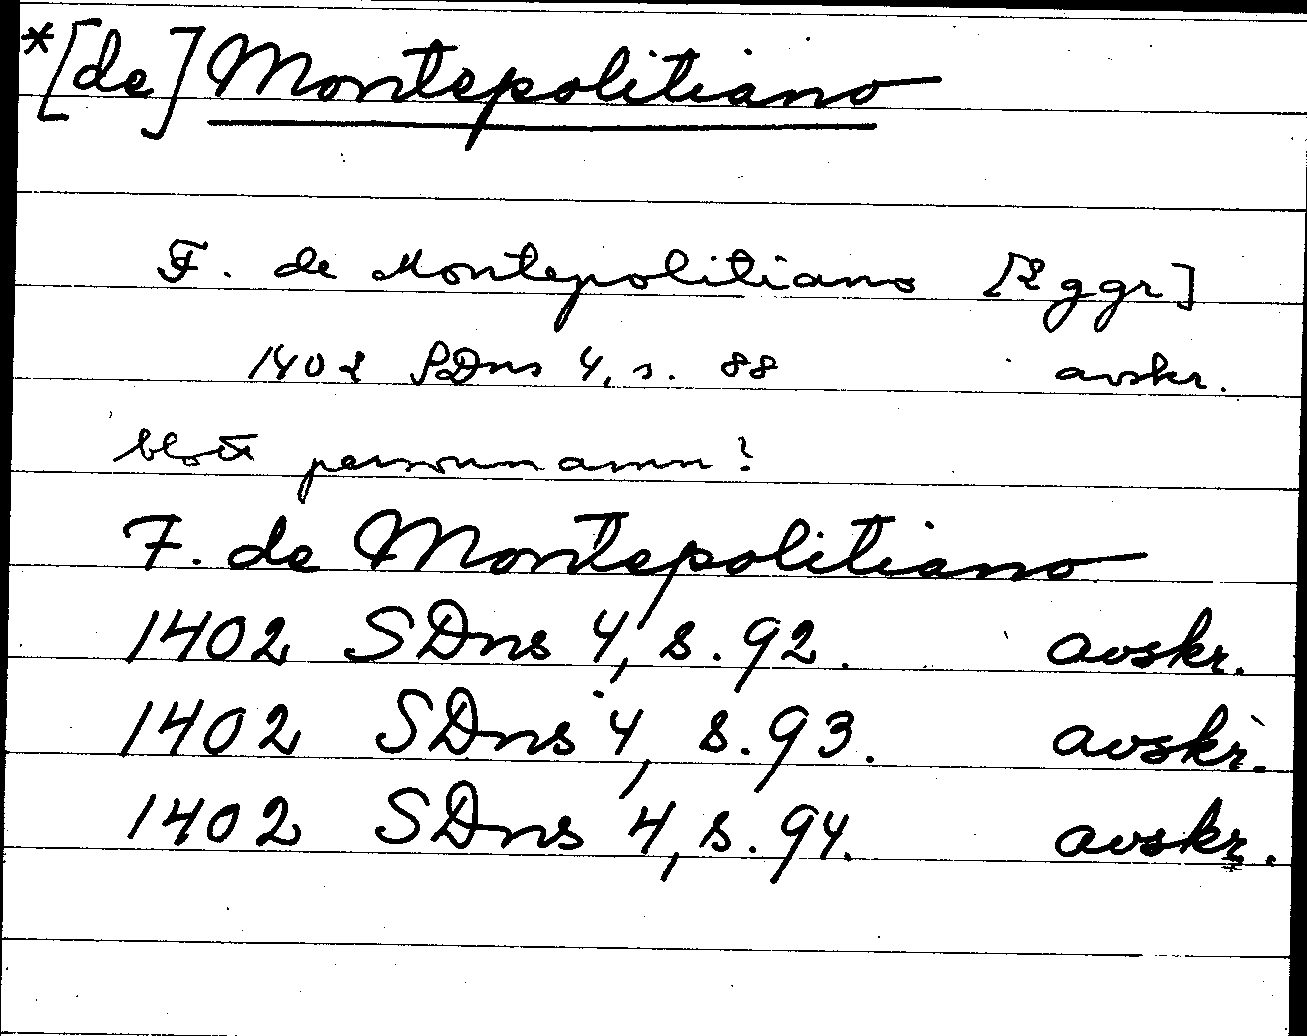 *[de] Montepolitiano
F. de Montepolitiano [2 ggr]
1402 SDns 4, s. 88 avskr.
blott personnamn?
F. de Montepolitiano
1402 SDns 4, s. 92. avskr.
1402 SDns 4, s. 93. avskr.
1402 SDns 4, s. 94. avskr.